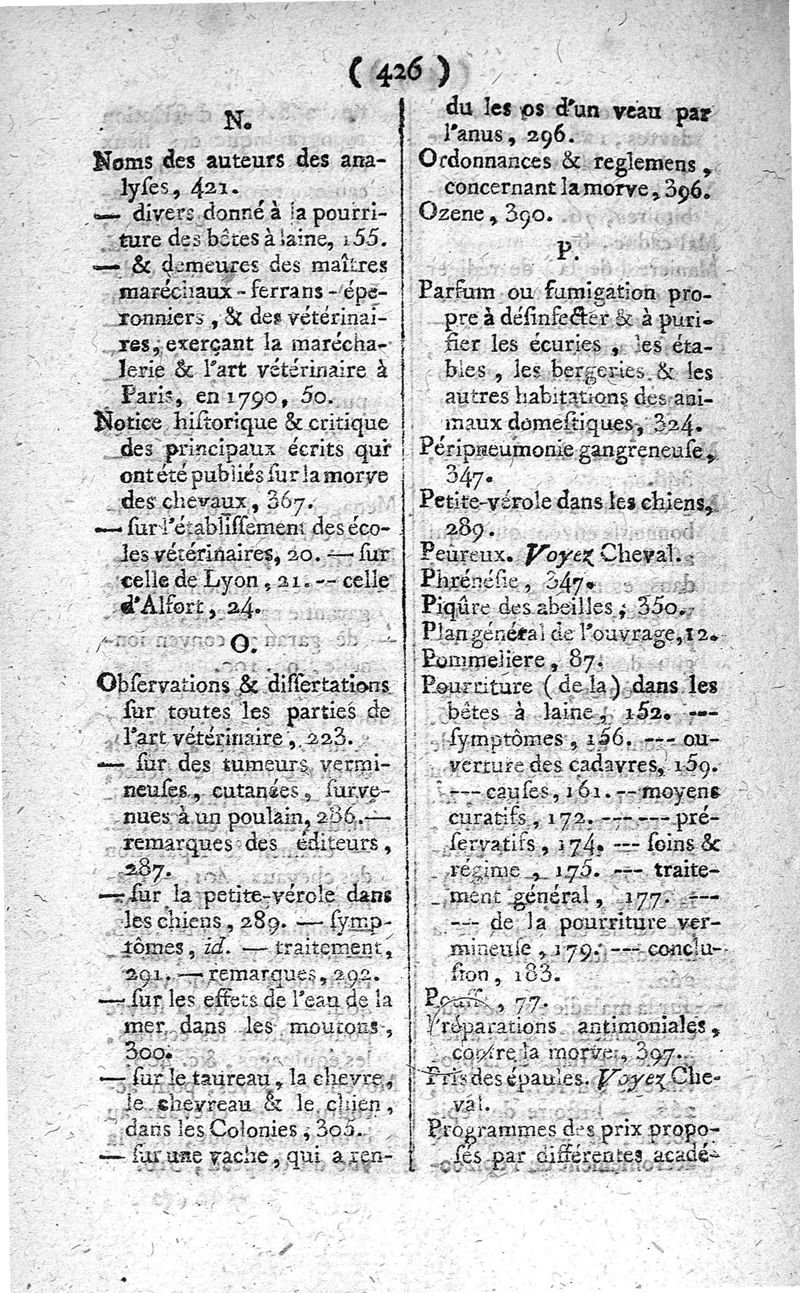 ( 426 )
N.
Noms des auteurs des ana-
lyſes, 421.
— divers donné à la pourri-
ture des bêtes à laine, 155.
— & demeures des maîtres
maréchaux-ferrans-épe-
ronniers, & des vétérinai-
res, exerçant la marécha-
lerie & l'art vétérinaire à
Paris, en 1790, 50.
Notice hiſtorique & critique
des principaux écrits qui
ont été publiés ſur la morve
des chevaux, 367.
— ſur l'établiſſement des éco-
les vétérinaires, 20. — ſur
celle de Lyon, 21. -- celle
d'Alfort, 24.
O.
Obſervations & diſſertations
ſur toutes les parties de
l'art vétérinaire, 223.
— ſur des tumeurs vermi-
neuſes, cutanées, ſurve-
nues à un poulain, 286. —
remarques des éditeurs,
287.
— ſur la petite-vérole dans
les chiens, 289. — ſymp-
tômes, id. — traitement,
291. — remarques, 292.
— ſur les effets de l'eau de la
mer dans les moutons,
300.
— ſur le taureau, la chevre,
le chevreau & le chien,
dans les Colonies, 305.
— ſur une vache, qui a ren-
du les os d'un veau par
l'anus, 296.
Ordonnances & reglemens,
concernant la morve, 396.
Ozene, 390.
P.
Parfum ou fumigation pro-
pre à déſinfecter & à puri-
fier les écuries, les éta-
bles, les bergeries & les
autres habitations des ani-
maux domeſtiques, 324.
Péripneumonie gangreneuſe,
347.
Petite-vérole dans les chiens,
289.
Peureux. Voyez Cheval.
Phrénéſie, 347.
Piqûre des abeilles, 350.
Plan général de l'ouvrage, 12.
Pommeliere, 87.
Pourriture (de la) dans les
bêtes à laine, 152. ---
ſymptômes, 156. --- ou-
verture des cadavres, 159.
--- cauſes, 161. -- moyens
curatifs, 172. --- --- pré-
ſervatifs, 174. --- ſoins &
régime, 175. --- traite-
ment général, 177. ---
--- de la pourriture ver-
mineuſe, 179. --- conclu-
ſion, 183.
Pouſſe, 77.
Préparations antimoniales,
contre la morve, 397.
Pris des épaules. Voyez Che-
val.
Programmes des prix propo-
ſés par différentes acadé-